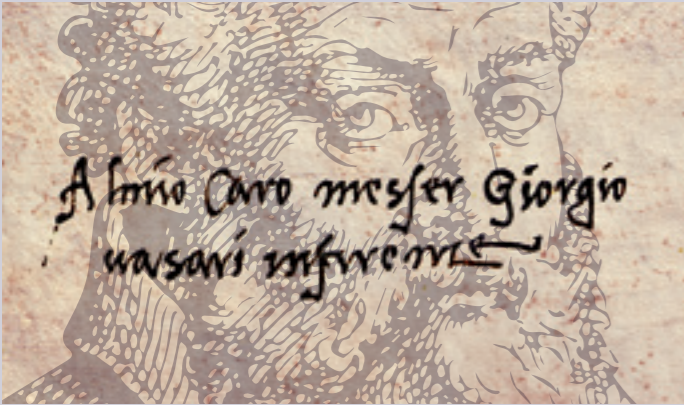 Almio Caro messer Giorgio
uasari infirenze